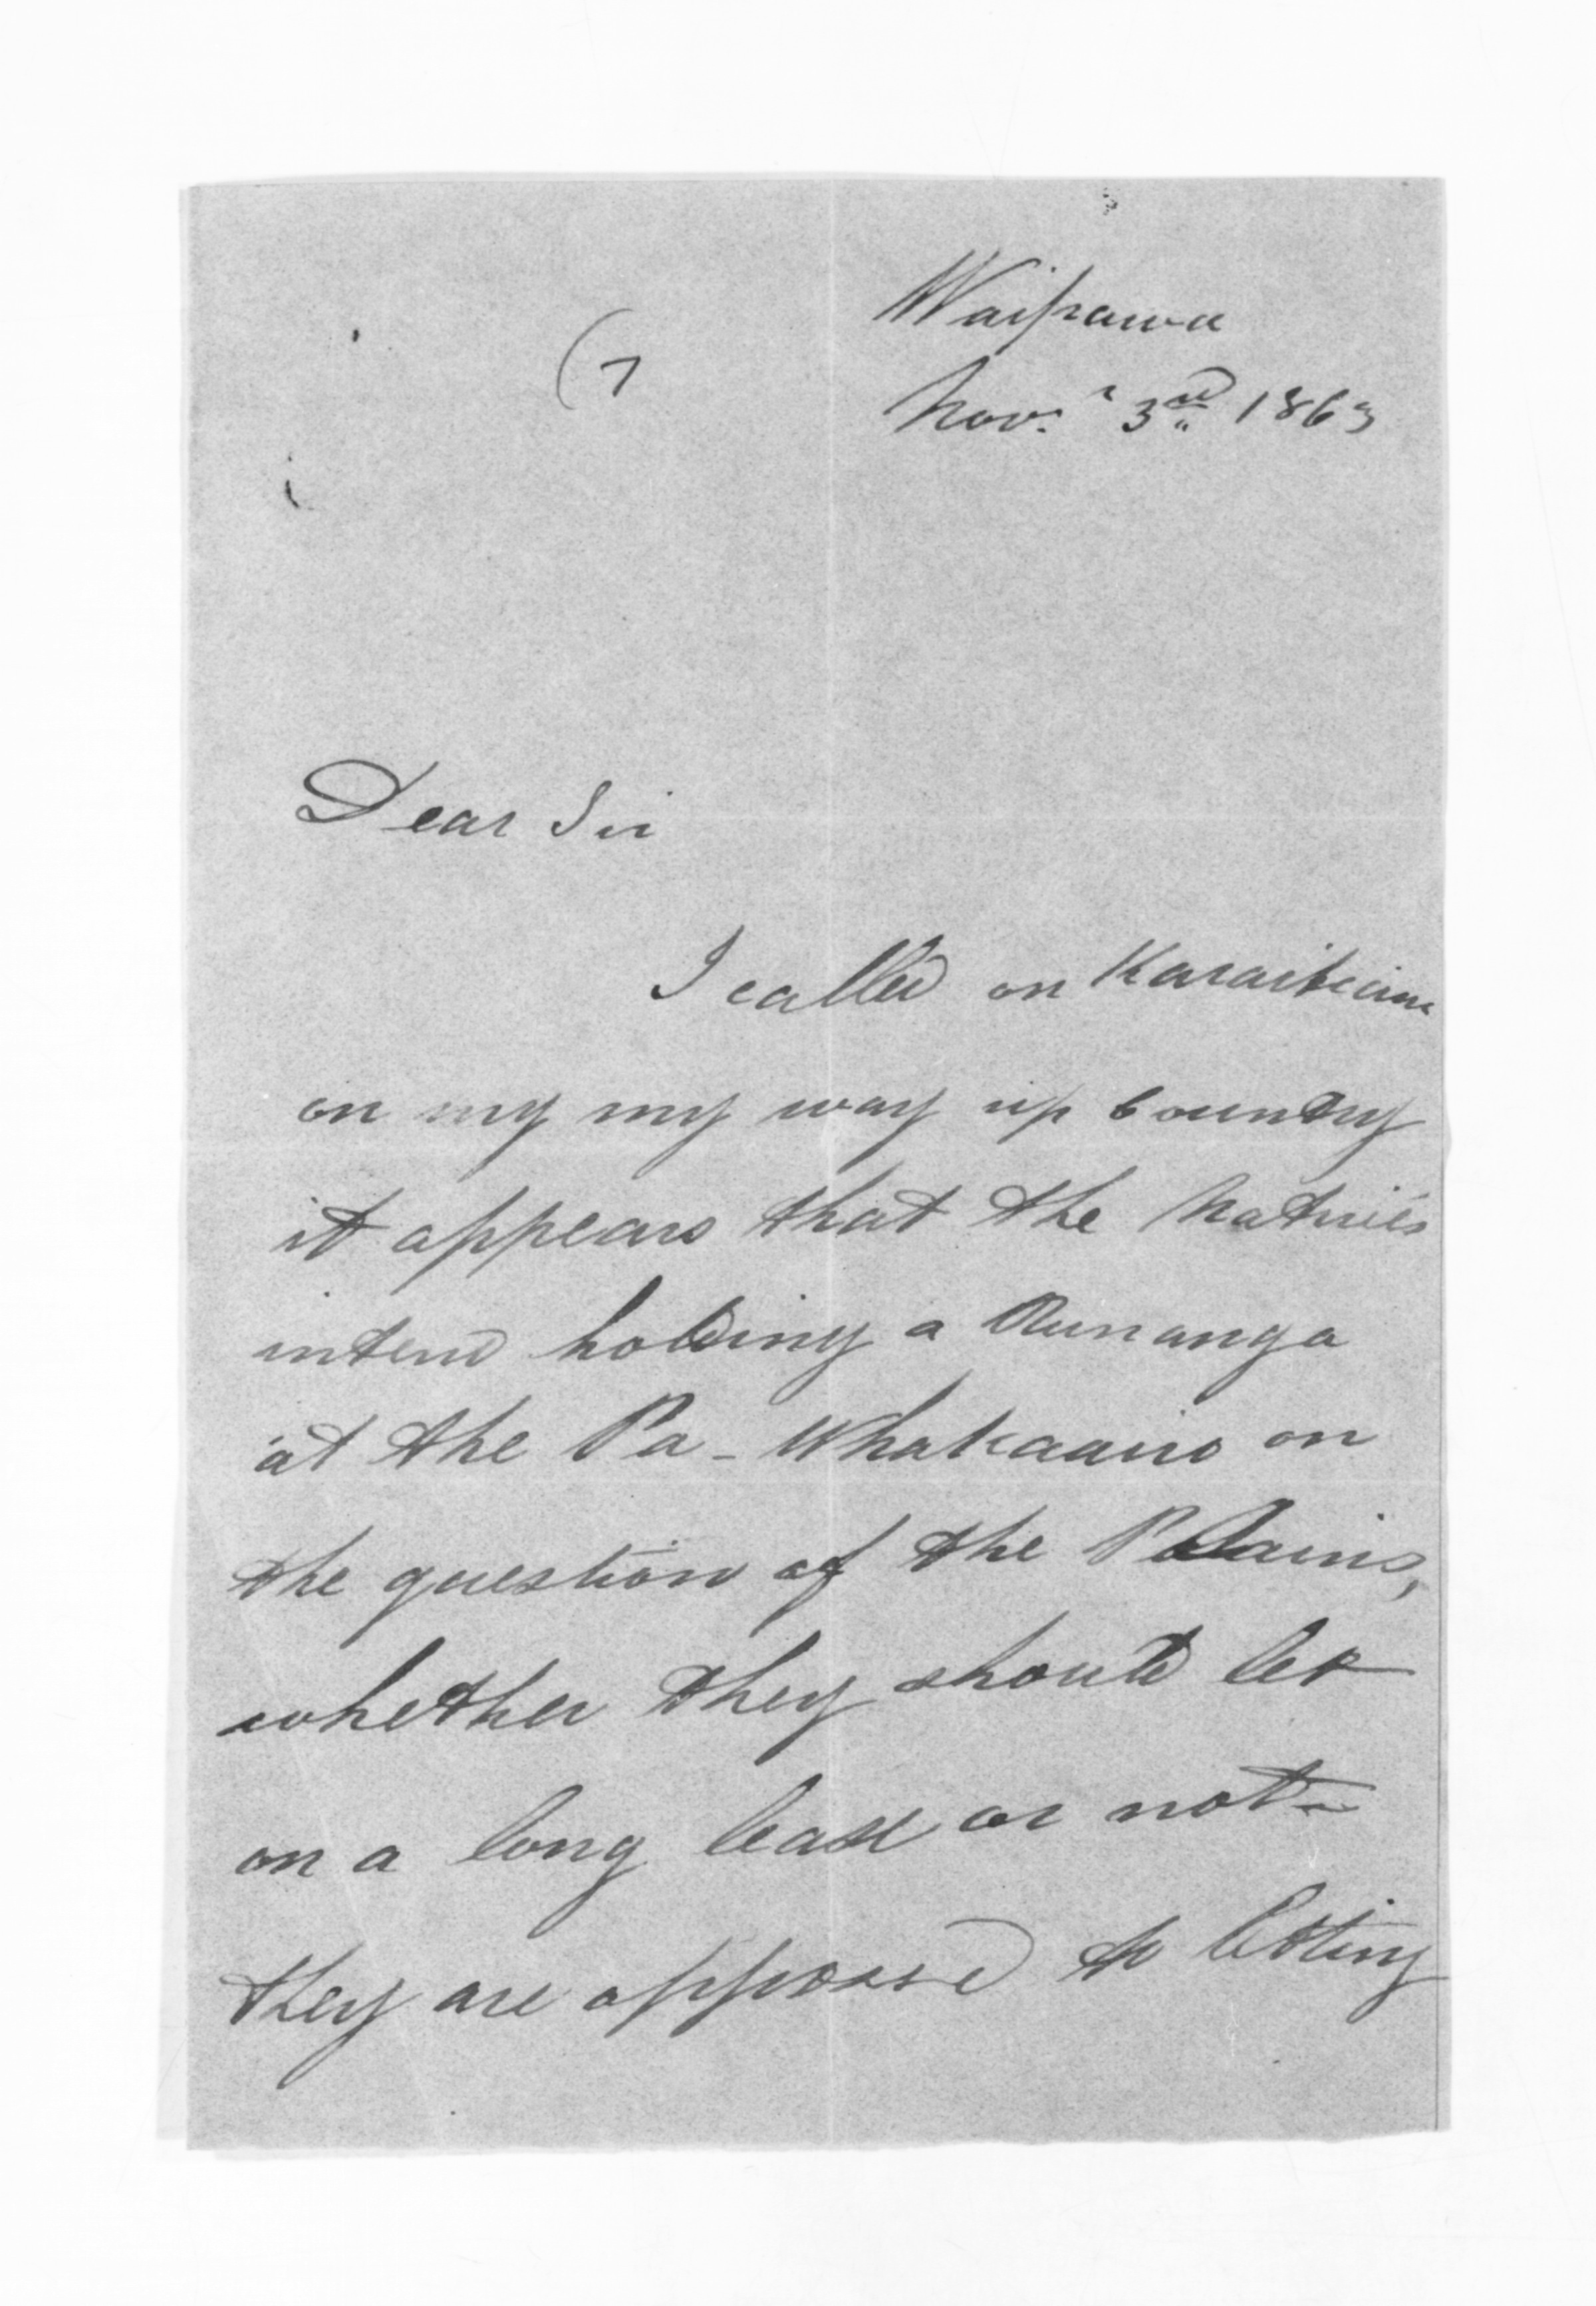 Waipawa
(7
Nov.r 3rd 1863
Dear Sir
I called on Karaitiana
on my my way up Country
it appears that the Natives
intend holding a Runanga
at the Pa - Whakaairo on
the question of the Plains,
whether they should let
on a long lease or not -
they are opposed to letting